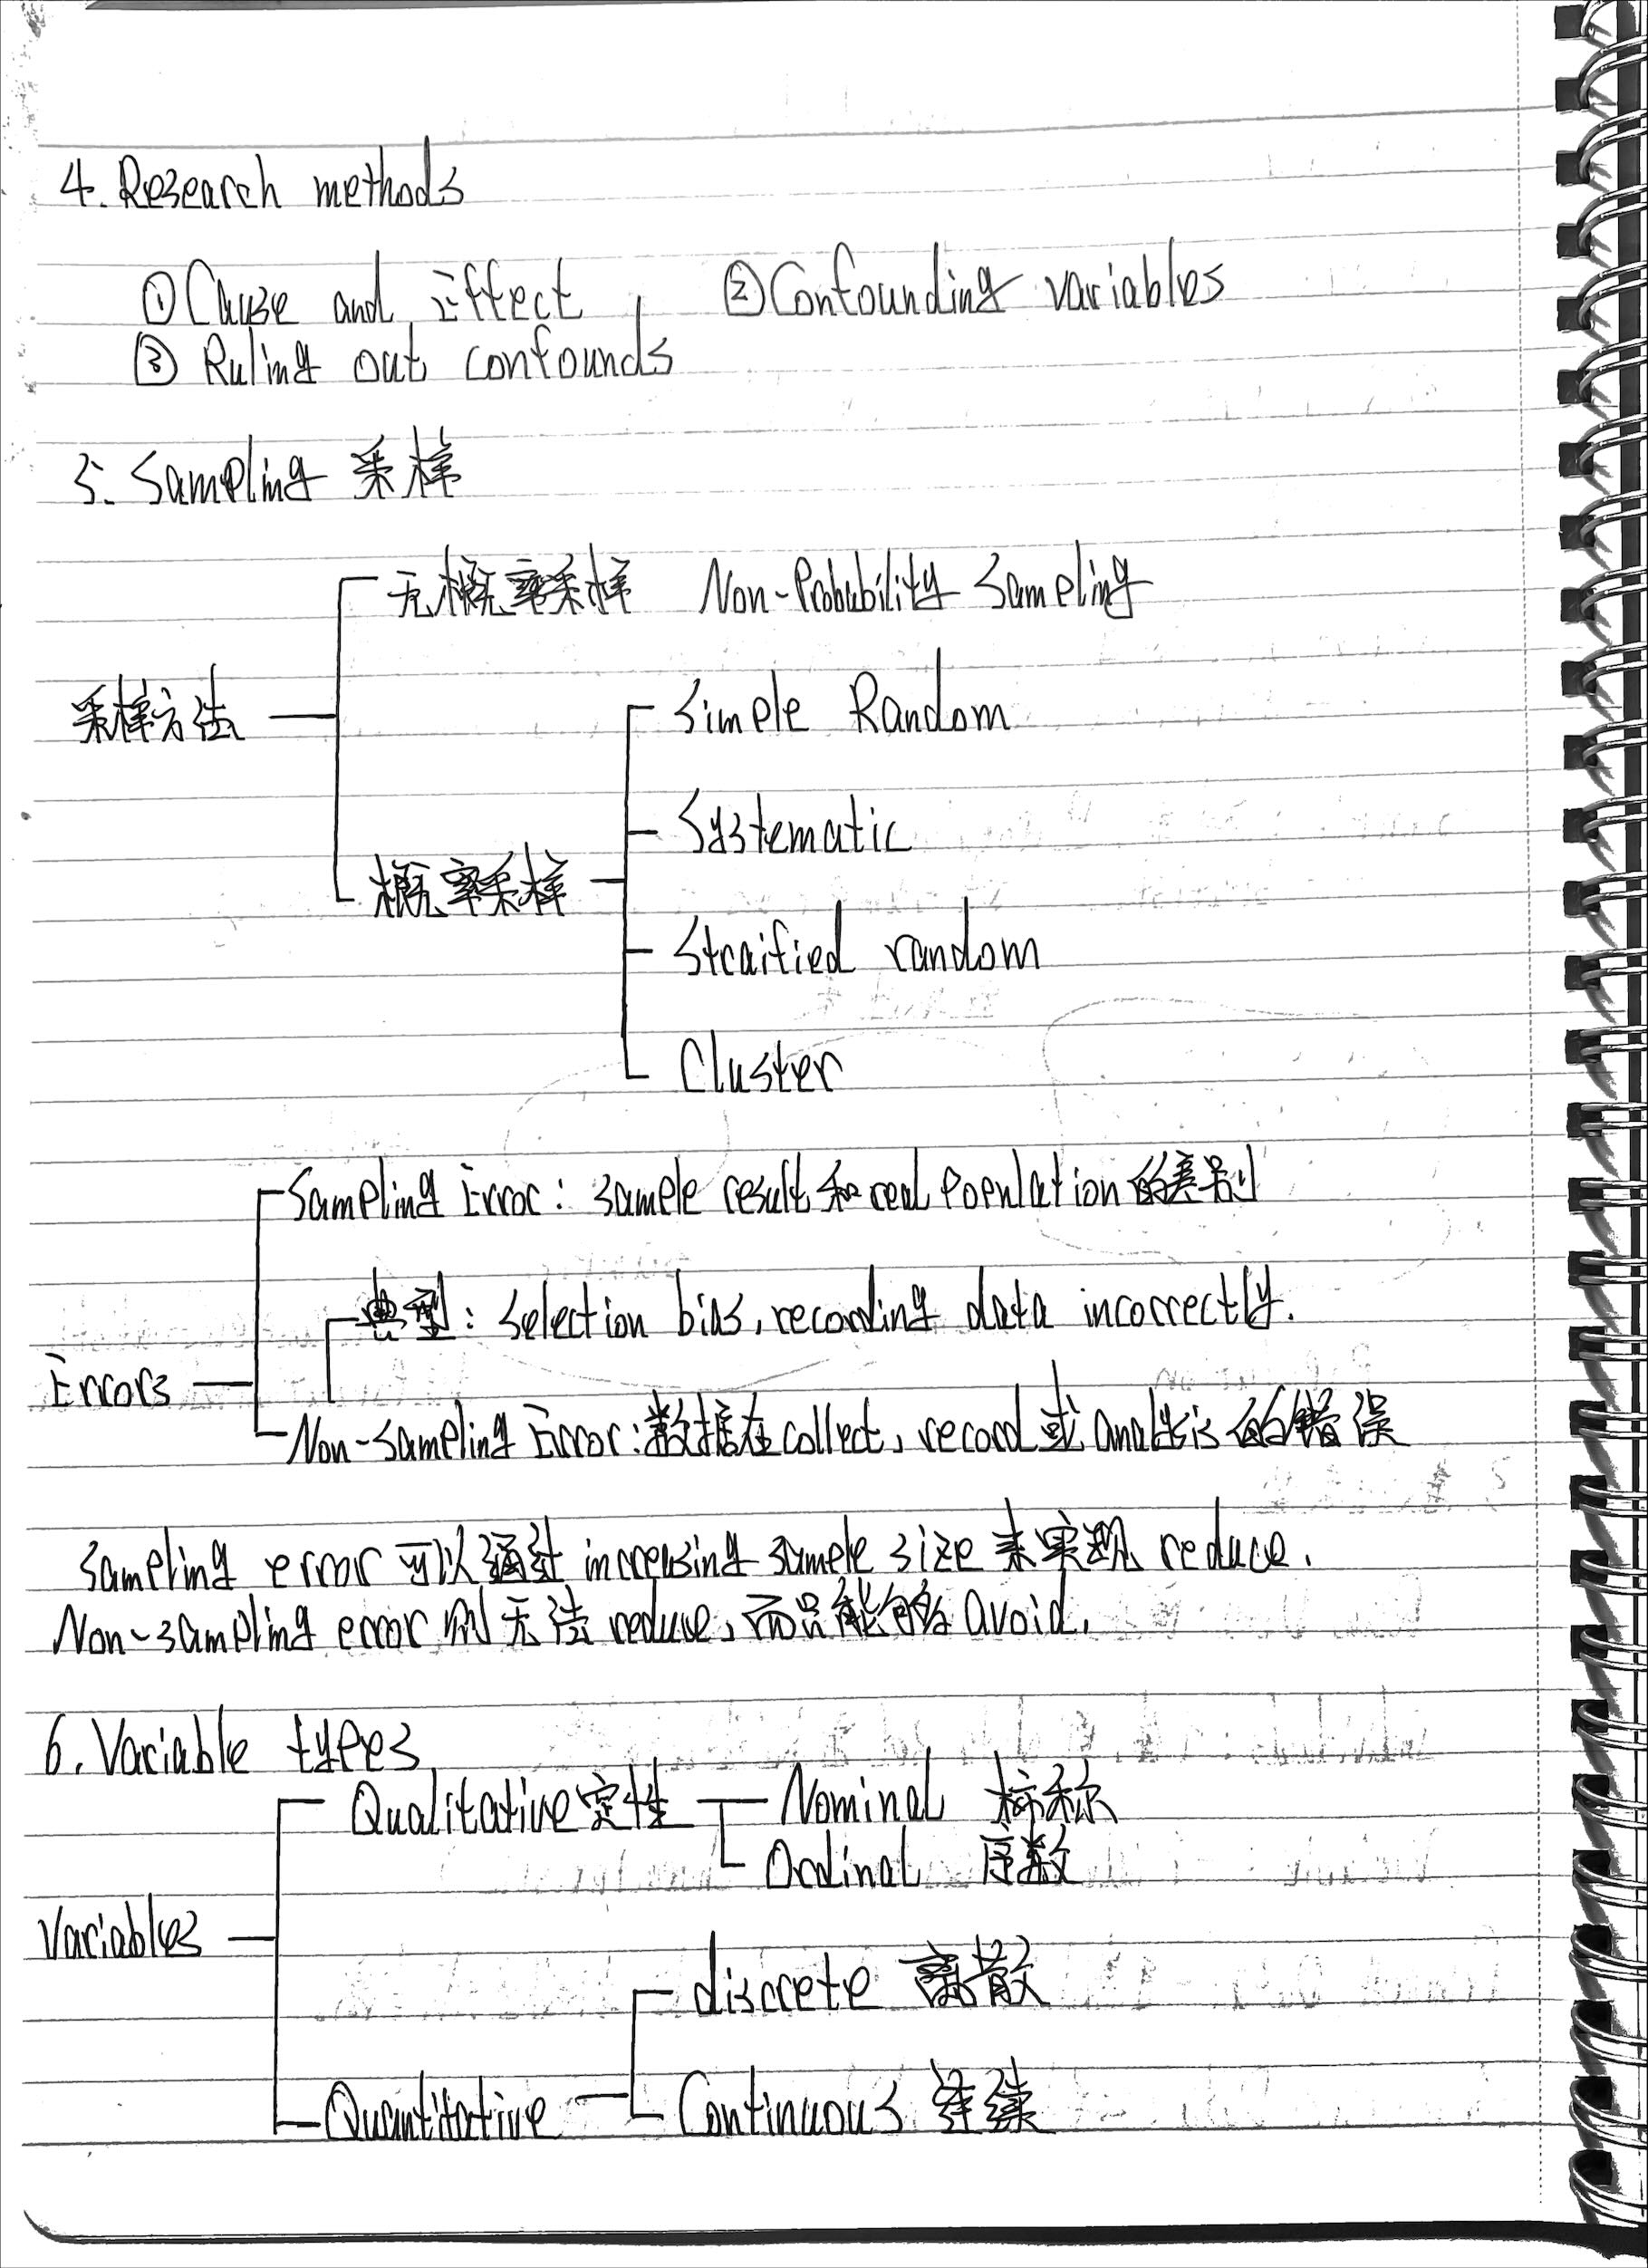 4. Research methods
①Cause and Effect ②Confounding variables
③ Ruling out confounds
5. Sampling 采样
无概率采样 Non-Probability Sampling
采样方法
Simple Random
Systematic
概率采样
Straified random
Cluster
Sampling Error: sample result 和 real population 的差别
典型: Selection bias, recording data incorrectly.
Errors
Non-sampling Error: 数据在 collect, record 或 analysis 的错误
Sampling error 可以通过 increasing sample size 来实现 reduce.
Non-sampling error 则无法 reduce, 而只能够 avoid.
6. Variable types
Qualitative 定性 Nominal 标称
Ordinal 序数
Variables
discrete 离散
Quantitative Continuous 连续